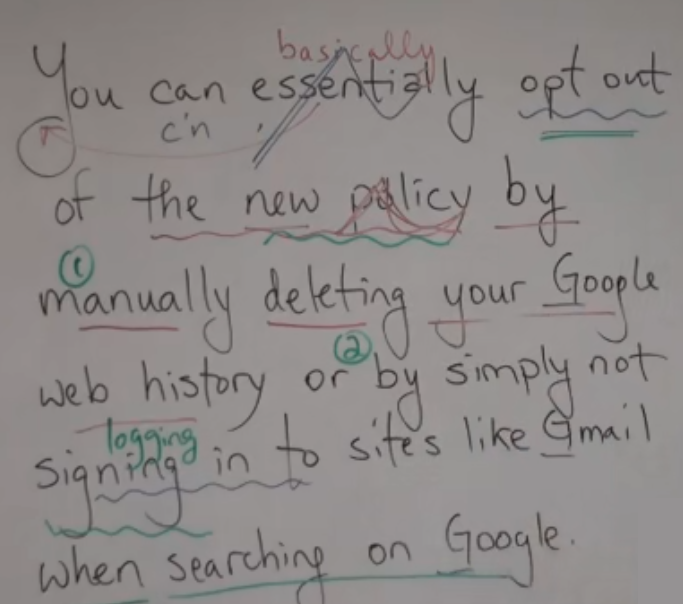 basically
You can essentially opt out
c'n
of the new policy by
①
manually deleting your Google
②
web history or by simply not
logging
signing in to sites like Gmail
when searching on Google.